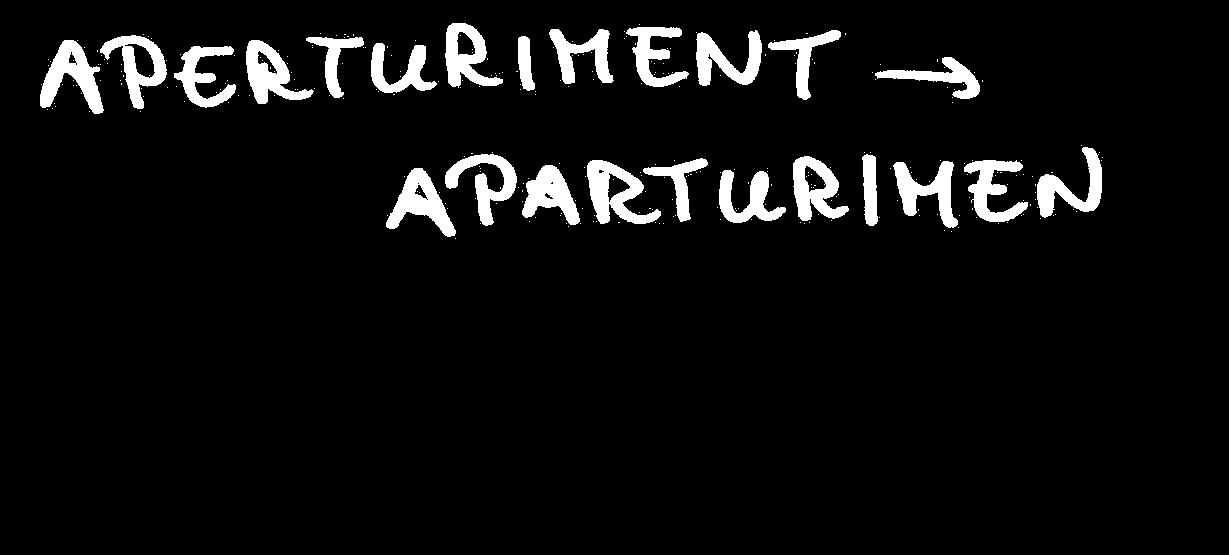 APERTURIMENT →
APARTURIMEN